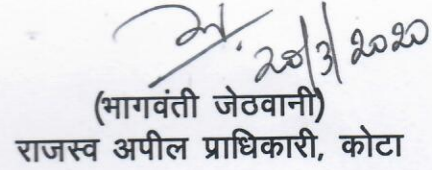 20/3/2020
(भागवंती जेठवानी)
राजस्व अपील प्राधिकारी, कोटा